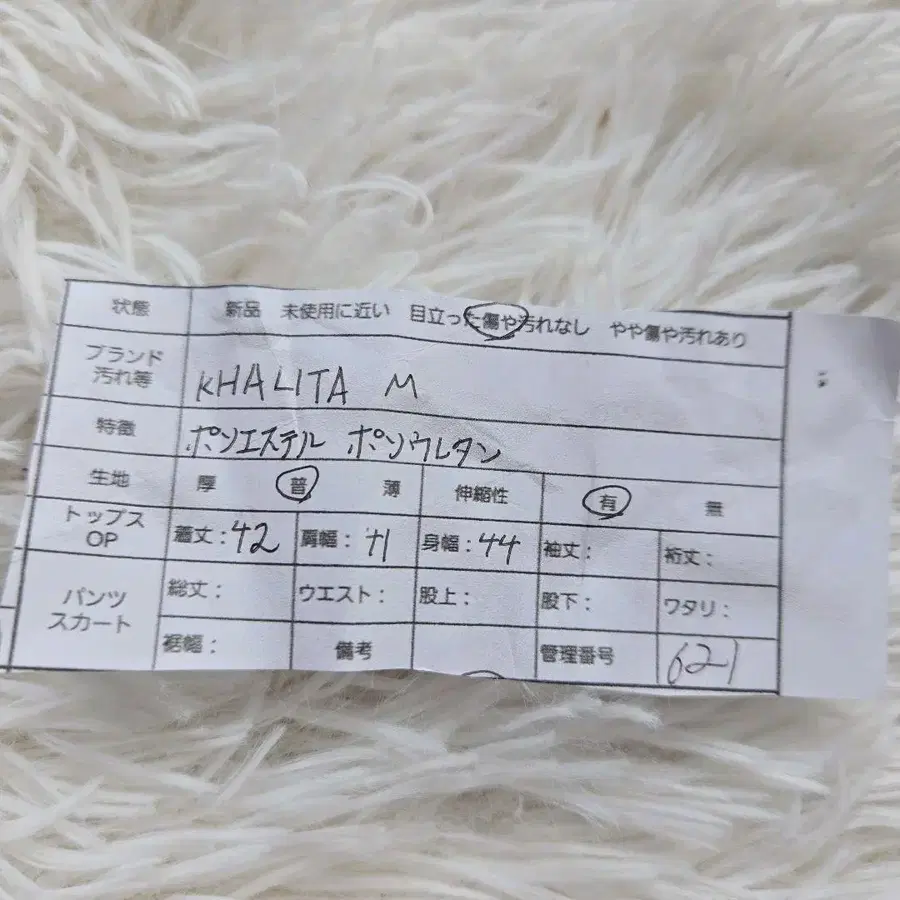 状態 新品 未使用に近い 目立った傷や汚れなし やや傷や汚れあり
ブランド
汚れ等 KHALITA M
特徴 ポリエステル ポリウレタン
生地 厚 普 薄 伸縮性 有 無
トップス
OP 着丈：42 肩幅： 身幅：44 袖丈： 裄丈：
パンツ
スカート 総丈： ウエスト： 股上： 股下： ワタリ：
裾幅： 備考 管理番号 1621